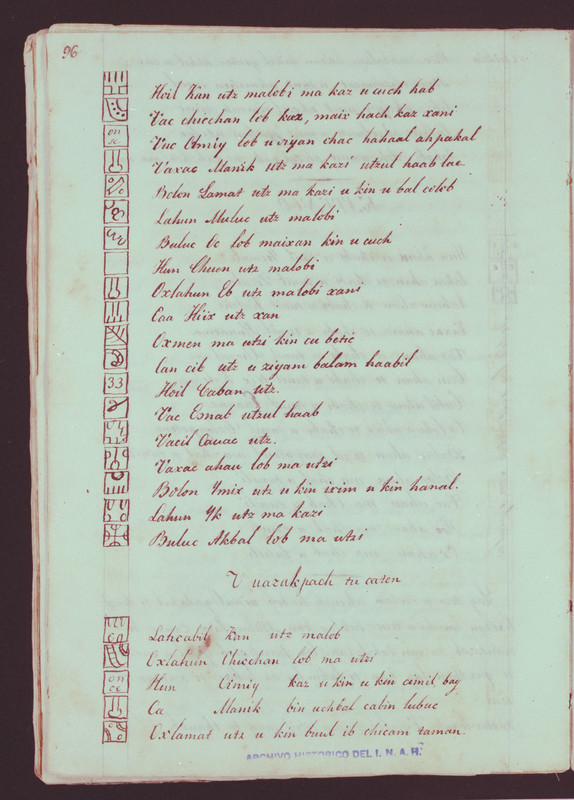 96
Hoil Kan utz malobi ma kaz u cuch hab
Vac chicchan lob kaz, maix hach kaz xani
Vuc Cimiy lob u ziyan chac hahaal ahpakal
Vaxac Manik utz ma kazi utzul haab lae
Bolon Lamat utz ma kazi u kin u bal colob
Lahun Muluc utz malobi
Buluc Oc lob maixan kin u cuch
Hun Chuen utz malobi
Oxlahun Eb utz malobi xani
Caa Hiix utz xan
Oxmen ma utzi kin cu betic
Can cib utz u ziyam balam haabil
Hoil Caban utz.
Vac Esnab utzul haab
Vacil Cauac utz.
Vaxac ahau lob ma utzi
Bolon Ymix utz u kin ixim u kin hanal.
Lahun Yk utz ma kazi
Buluc Akbal lob ma utzi
V uazakpach tu caten
Lahcabil Kan utz malob
Oxlahun Chicchan lob ma utzi
Hun Cimiy kaz u kin u kin cimil bay
Ca Manik bin uchbal cabin lubuc
Oxlamat utz u kin buul ib chicam taman.
ARCHIVO HISTORICO DEL I. N. A. H.